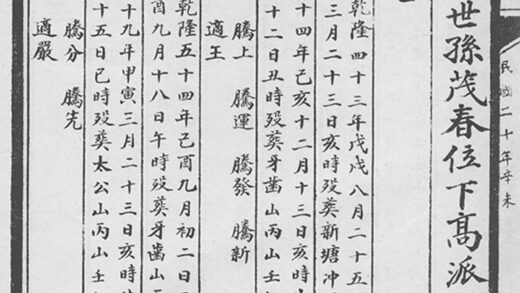 民國二十年辛未
世孫茂春位下高派
乾隆四十三年戊戌八月二十五
三月二十三日亥時歿葬新塘冲
十四年己亥十二月十三日亥時
十二日丑時歿葬牙歯山丙山壬
騰上 騰運 騰發 騰新
適王
乾隆五十四年己酉九月初二日
酉九月十八日午時歿葬牙歯山
十九年甲寅三月二十三日亥時
十五日巳時歿葬太公山丙山壬
騰分 騰先
適嚴